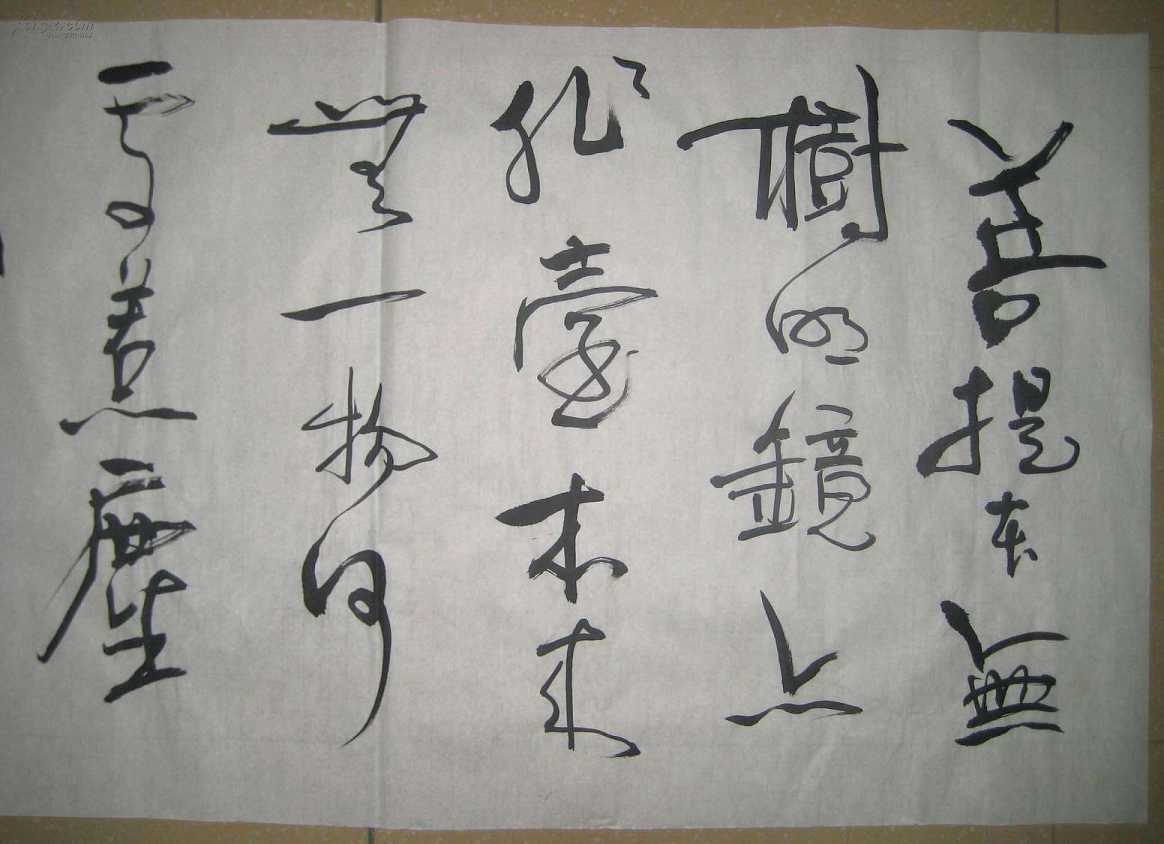 菩提本無
樹明鏡亦
非臺本来
無一物何
處惹塵